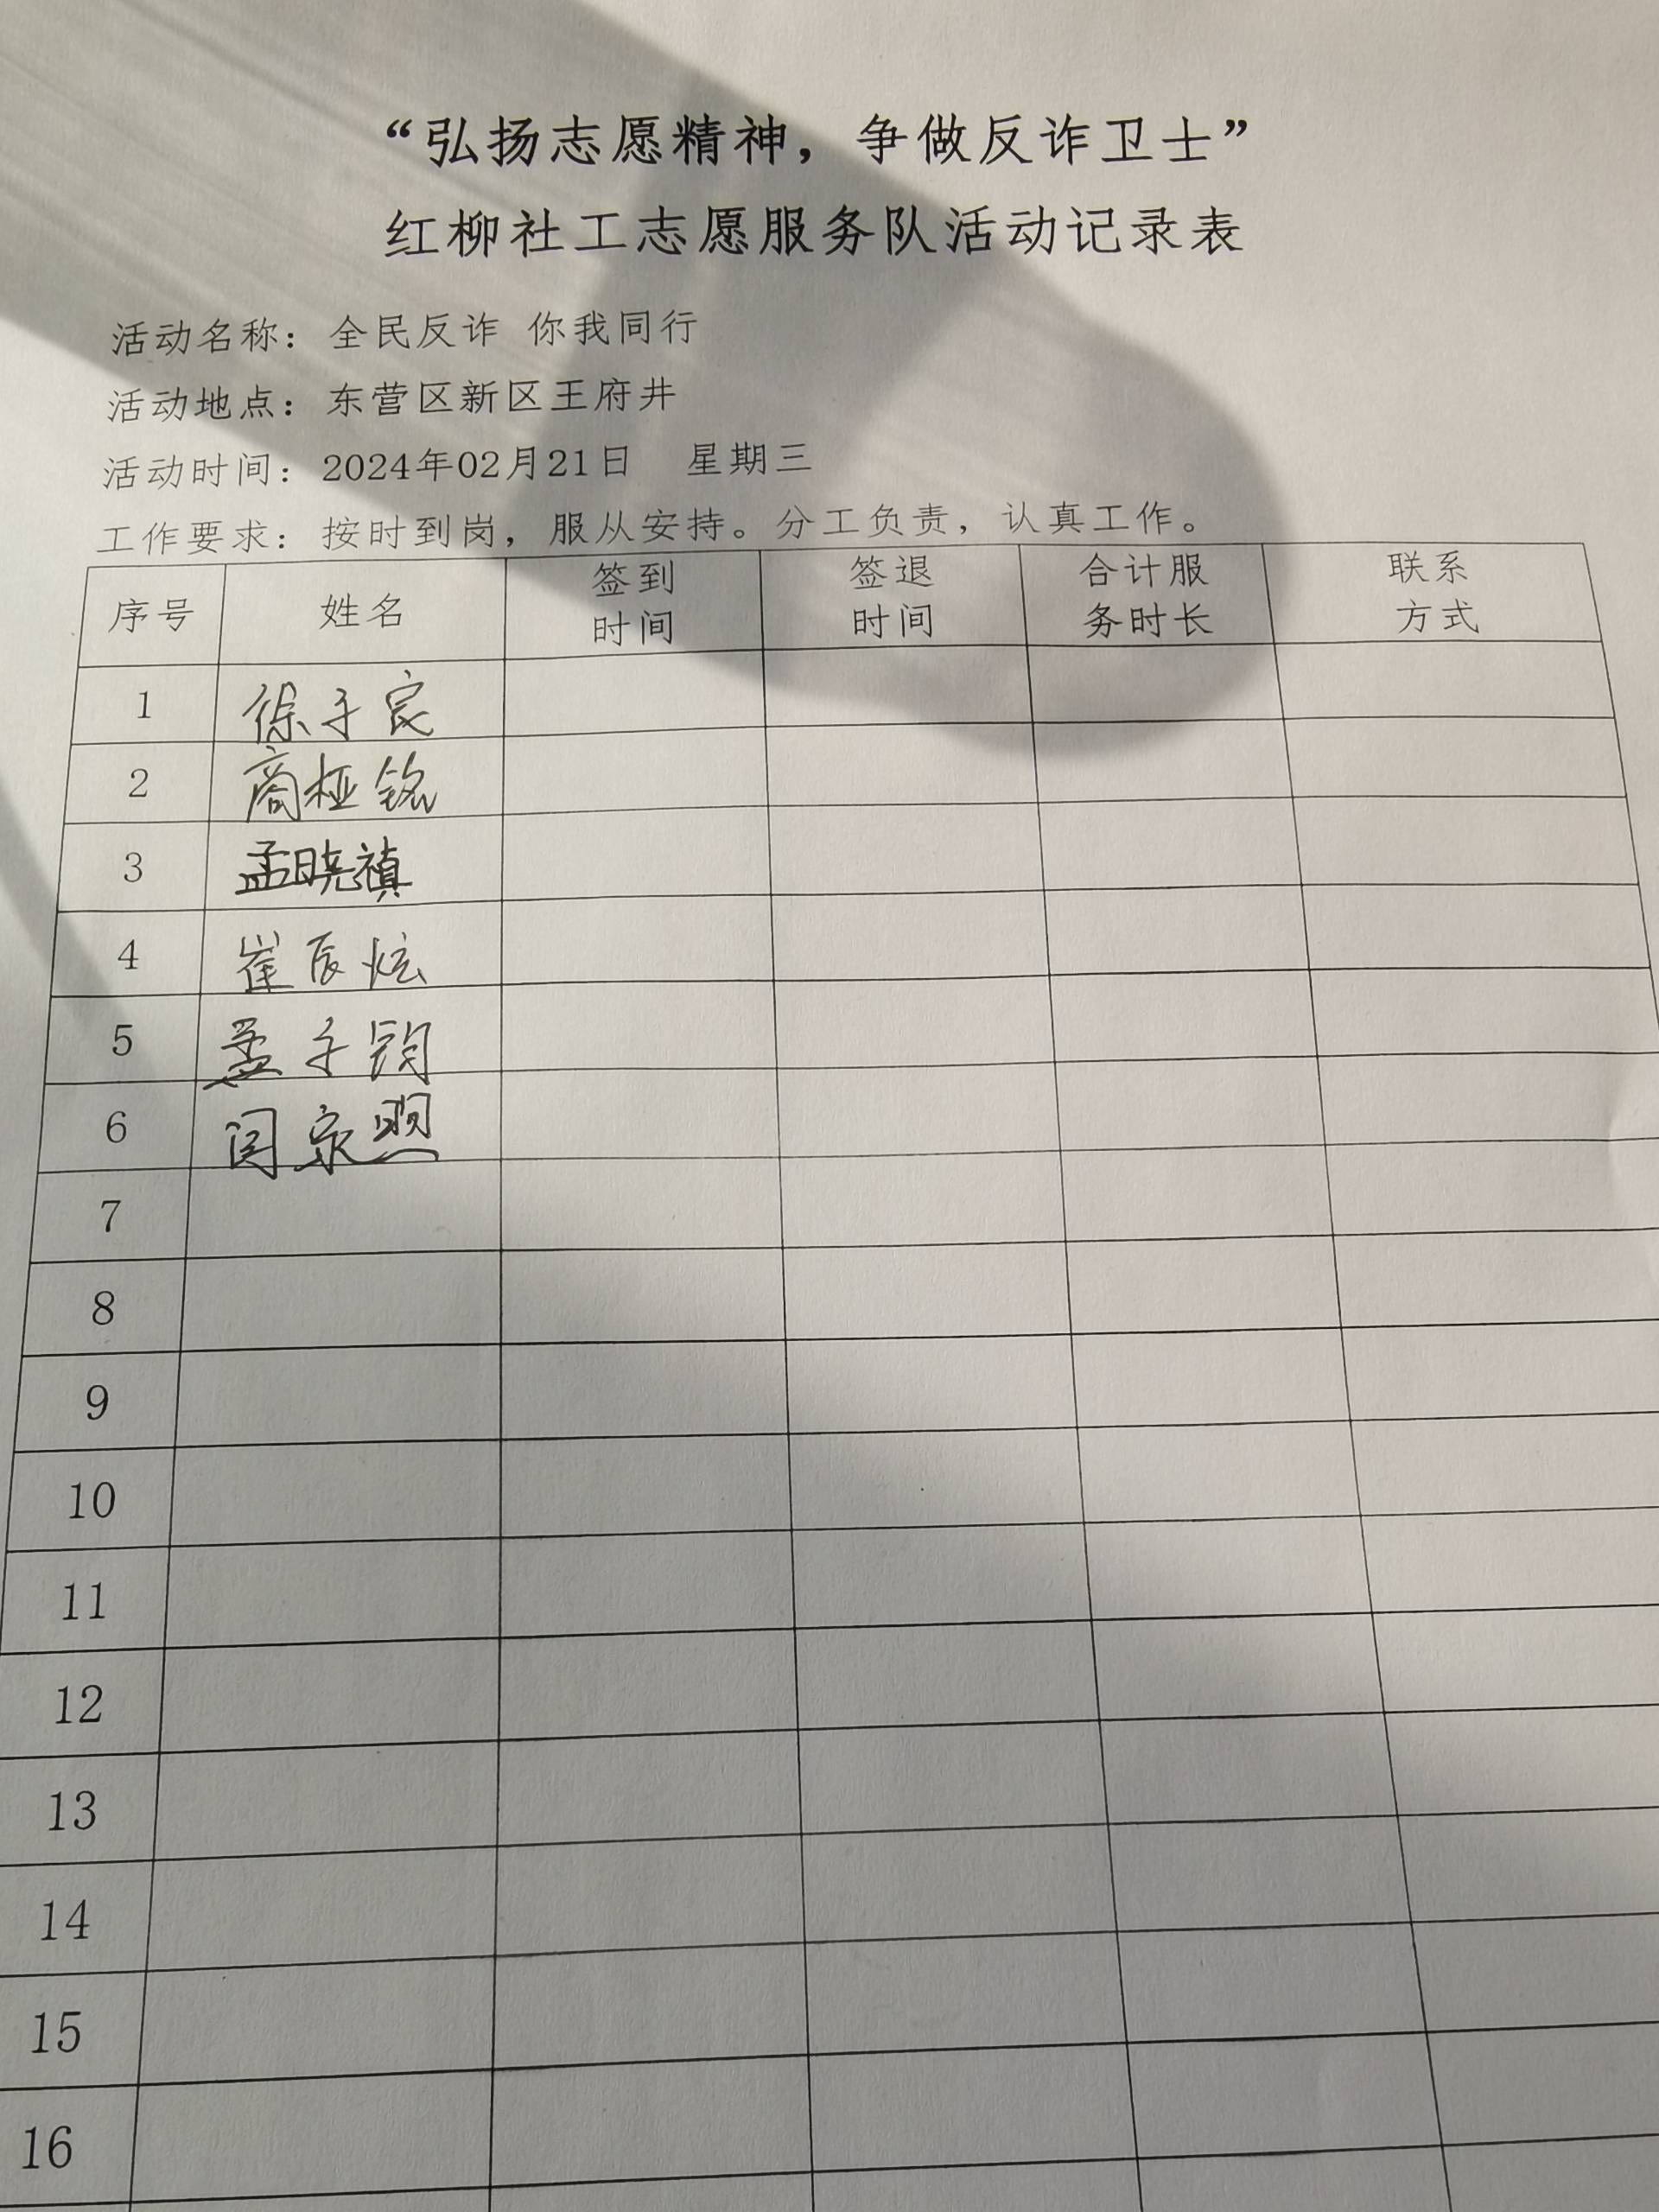 “弘扬志愿精神，争做反诈卫士”
红柳社工志愿服务队活动记录表
活动名称：全民反诈 你我同行
活动地点：东营区新区王府井
活动时间：2024年02月21日 星期三
工作要求：按时到岗，服从安持。分工负责，认真工作。
序号 姓名 签到时间 签退时间 合计服务时长 联系方式
1 徐子宸
2 商桠铭
3 孟晓禛
4 崔辰炫
5 孟子钧
6 闫家煦
7
8
9
10
11
12
13
14
15
16